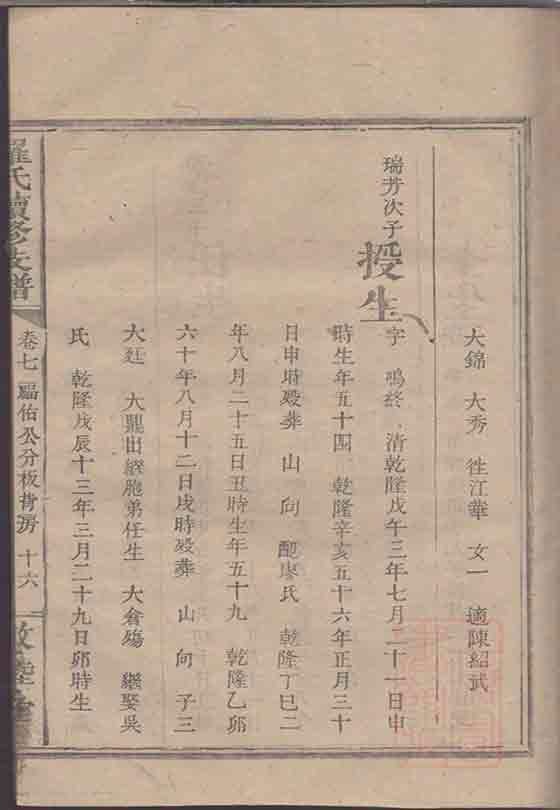 大錦 大秀 徃江華 女一 適陳紹武
瑞芳次子
授生
字 鳴終 清乾隆戊午三年七月二十一日申
時生年五十四 乾隆辛亥五十六年正月三十
日申時殁葬 山 向 配廖氏 乾隆丁巳二
年八月二十五日丑時生年五十九 乾隆乙卯
六十年八月十二日戌時殁葬 山 向 子三
大廷 大鼎出繼胞弟任生 大倉殤 繼娶吳
氏 乾隆戊辰十三年三月二十九日卯時生
羅氏續修支譜
卷七 福佑公分板背房 十六
敦睦堂